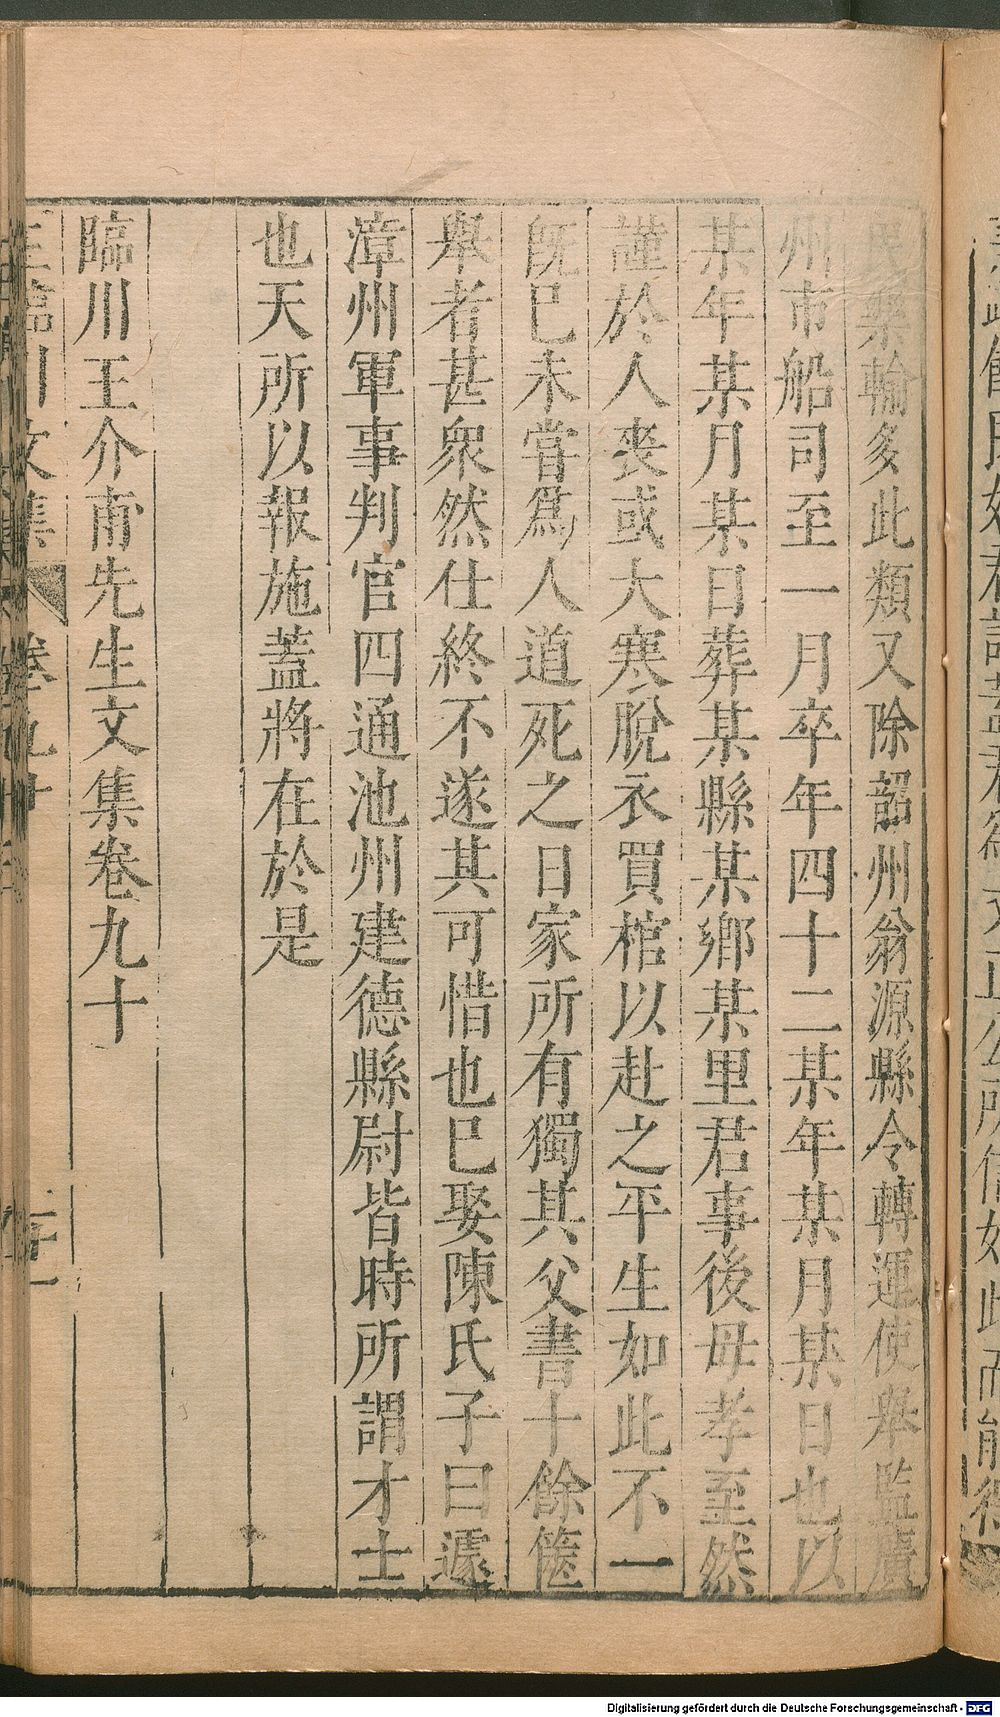 民樂輸多此類又除韶州翁源縣令轉運使舉監廣
州市船司至一月卒年四十二某年某月某日也以
某年某月某日葬某縣某鄉某里君事後母孝至然
謹於人喪或大寒脫衣買棺以赴之平生如此不一
旣已未嘗爲人道死之日家所有獨其父書十餘篋
舉者甚衆然仕終不遂其可惜也已娶陳氏子曰遽
漳州軍事判官四通池州建德縣尉皆時所謂才士
也天所以報施蓋將在於是
臨川王介甫先生文集卷九十
王臨川文集 卷九十
Digitalisierung gefördert durch die Deutsche Forschungsgemeinschaft - DFG